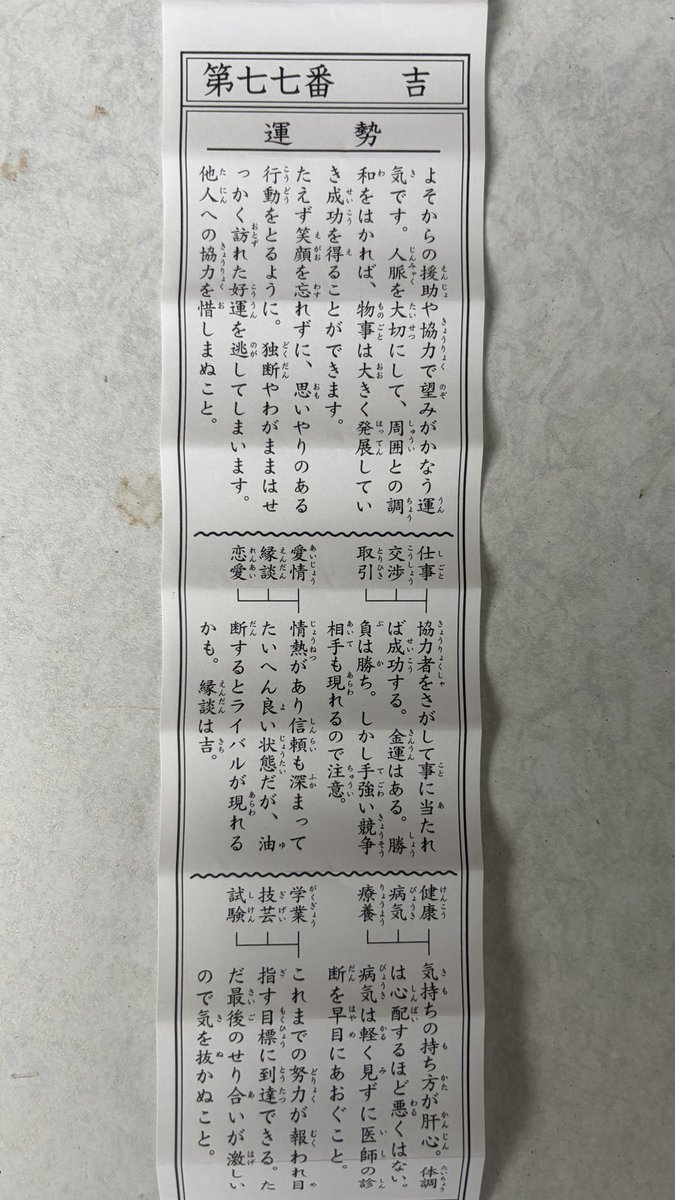 第七七番　吉
運勢
よそからの援助や協力で望みがかなう運
気です。人脈を大切にして、周囲との調
和をはかれば、物事は大きく発展してい
き成功を得ることができます。
たえず笑顔を忘れずに、思いやりのある
行動をとるように。独断やわがままはせ
っかく訪れた好運を逃してしまいます。
他人への協力を惜しまぬこと。
仕事
交渉
取引
協力者をさがして事に当たれ
ば成功する。金運はある。勝
負は勝ち。しかし手強い競争
相手も現れるので注意。
愛情
縁談
恋愛
情熱があり信頼も深まって
たいへん良い状態だが、油
断するとライバルが現れる
かも。縁談は吉。
健康
病気
療養
気持ちの持ち方が肝心。体調
は心配するほど悪くはない。
病気は軽く見ずに医師の診
断を早目にあおぐこと。
学業
技芸
試験
これまでの努力が報われ目
指す目標に到達できる。た
だ最後のせり合いが激しい
ので気を抜かぬこと。